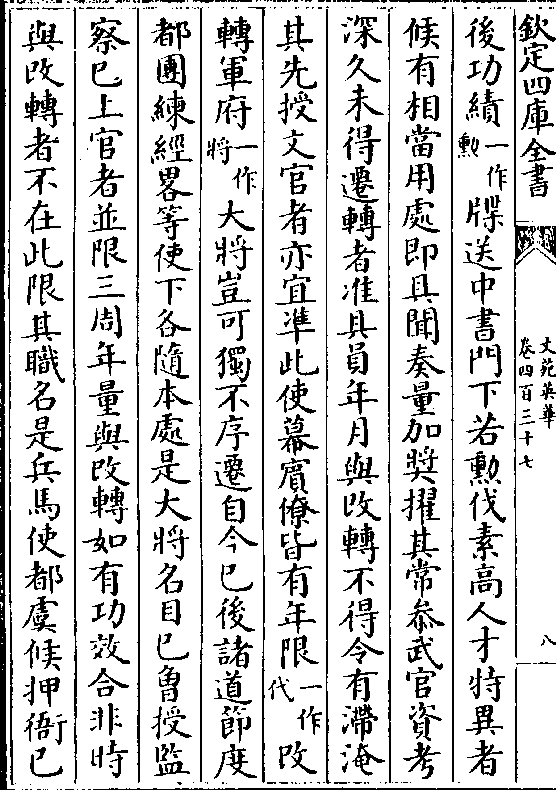 欽定四庫全書
文苑英華
卷四百三十七
八
後功績一作勲牒送中書門下若勲伐素高人才特異者
候有相當用處即具聞奏量加奬擢其常叅武官資考
深久未得遷轉者准具員年月與改轉不得令有滯淹
其先授文官者亦宜準此使幕賓僚皆有年限一作代改
轉軍府一作將大將豈可獨不序遷自今已後諸道節度
都團練經畧等使下各隨本處是大將名目已曾授監
察已上官者並限三周年量與改轉如有功效合非時
與改轉者不在此限其職名是兵馬使都虞候押衙已